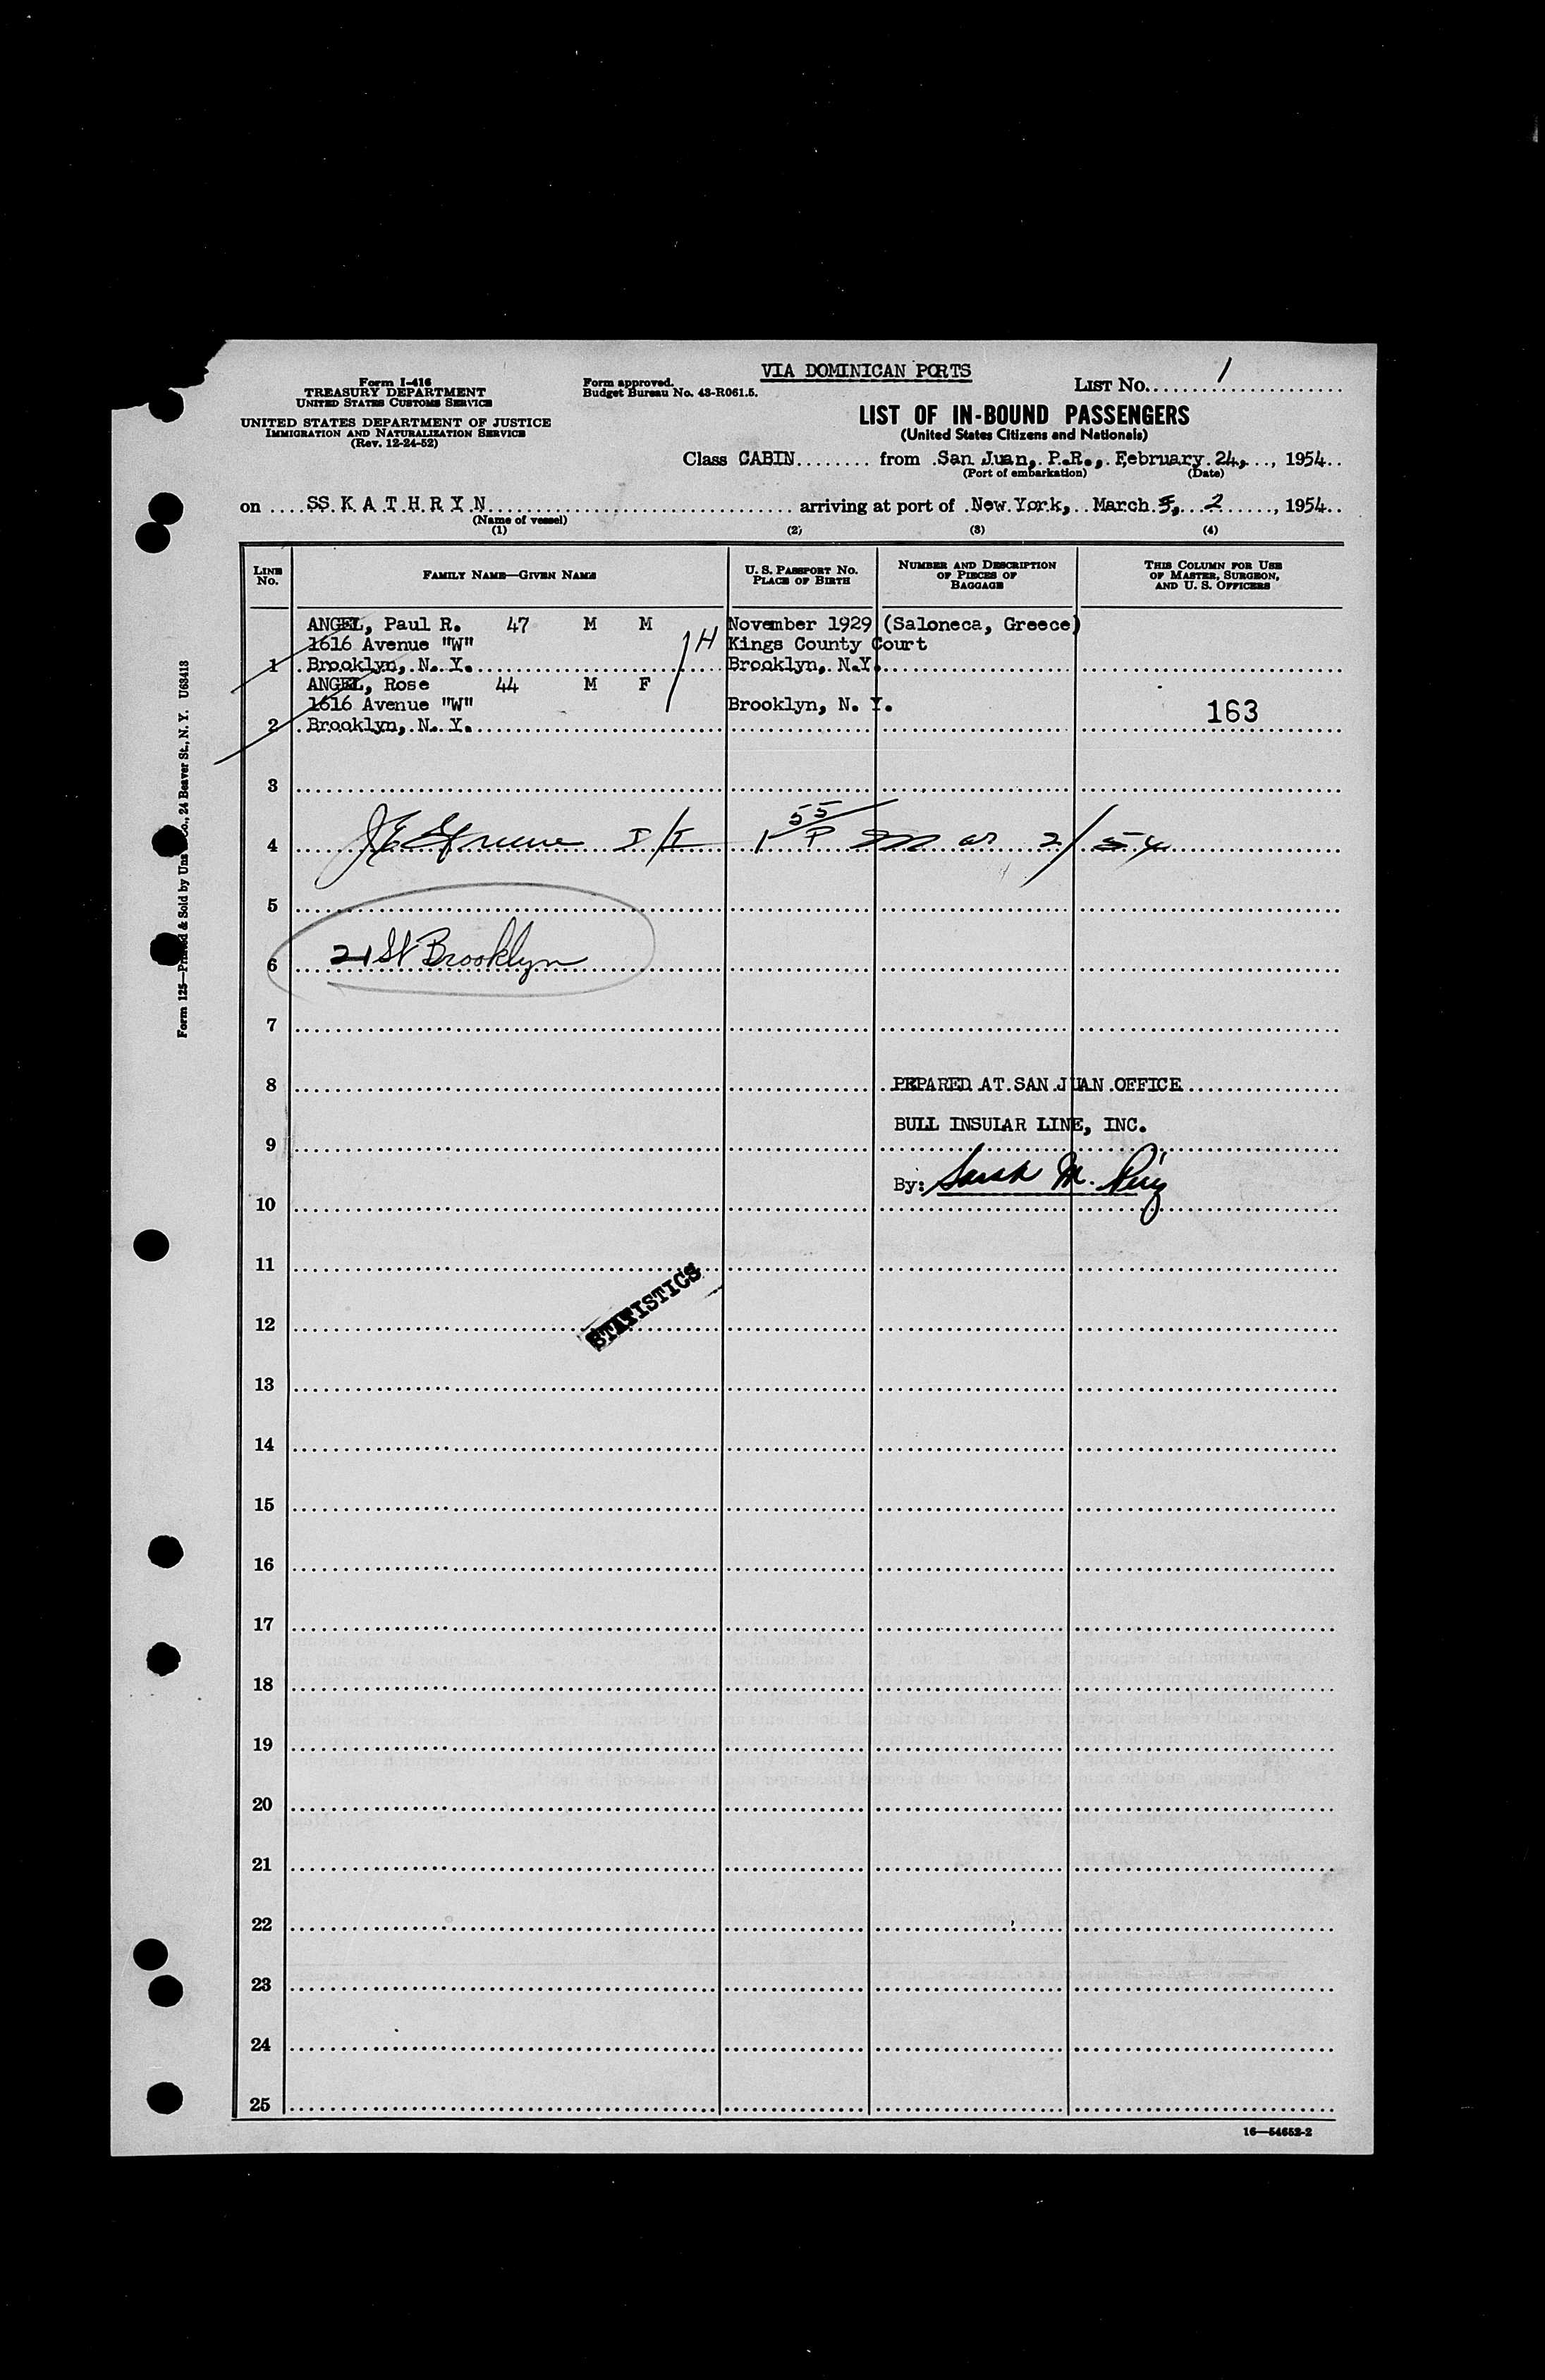 VIA DOMINICAN PORTS
Form I-416
TREASURY DEPARTMENT
UNITED STATES CUSTOMS SERVICE
UNITED STATES DEPARTMENT OF JUSTICE
IMMIGRATION AND NATURALIZATION SERVICE
(Rev. 12-24-52)
Form approved.
Budget Bureau No. 43-R061.5.
LIST No. 1
LIST OF IN-BOUND PASSENGERS
(United States Citizens and Nationals)
Class CABIN from San Juan, P.R., February 24, 1954
(Port of embarkation) (Date)
on SS K A T H R Y N arriving at port of New York, March 5, 2, 1954
(Name of vessel)
(1) (2) (3) (4)
LINE No. FAMILY NAME—GIVEN NAME U. S. PASSPORT No. PLACE OF BIRTH NUMBER AND DESCRIPTION OF PIECES OF BAGGAGE THIS COLUMN FOR USE OF MASTER, SURGEON, AND U. S. OFFICERS
ANGEL, Paul R. 47 M M November 1929 (Saloneca, Greece)
1616 Avenue "W" 1 H Kings County Court
1 Brooklyn, N. Y. Brooklyn, N.Y.
ANGEL, Rose 44 M F
1616 Avenue "W" Brooklyn, N. Y. 163
2 Brooklyn, N. Y.
3
4 I/I 1 55/P Mar 2/54
5
6 21 St Brooklyn
7
8 PEPARED AT SAN JUAN OFFICE
BULL INSULAR LINE, INC.
9
By: Sarah M.
10
11
STATISTICS
12
13
14
15
16
17
18
19
20
21
22
23
24
25
16—54652-2
Form 125—Printed & Sold by Co., 24 Beaver St., N. Y. U63413